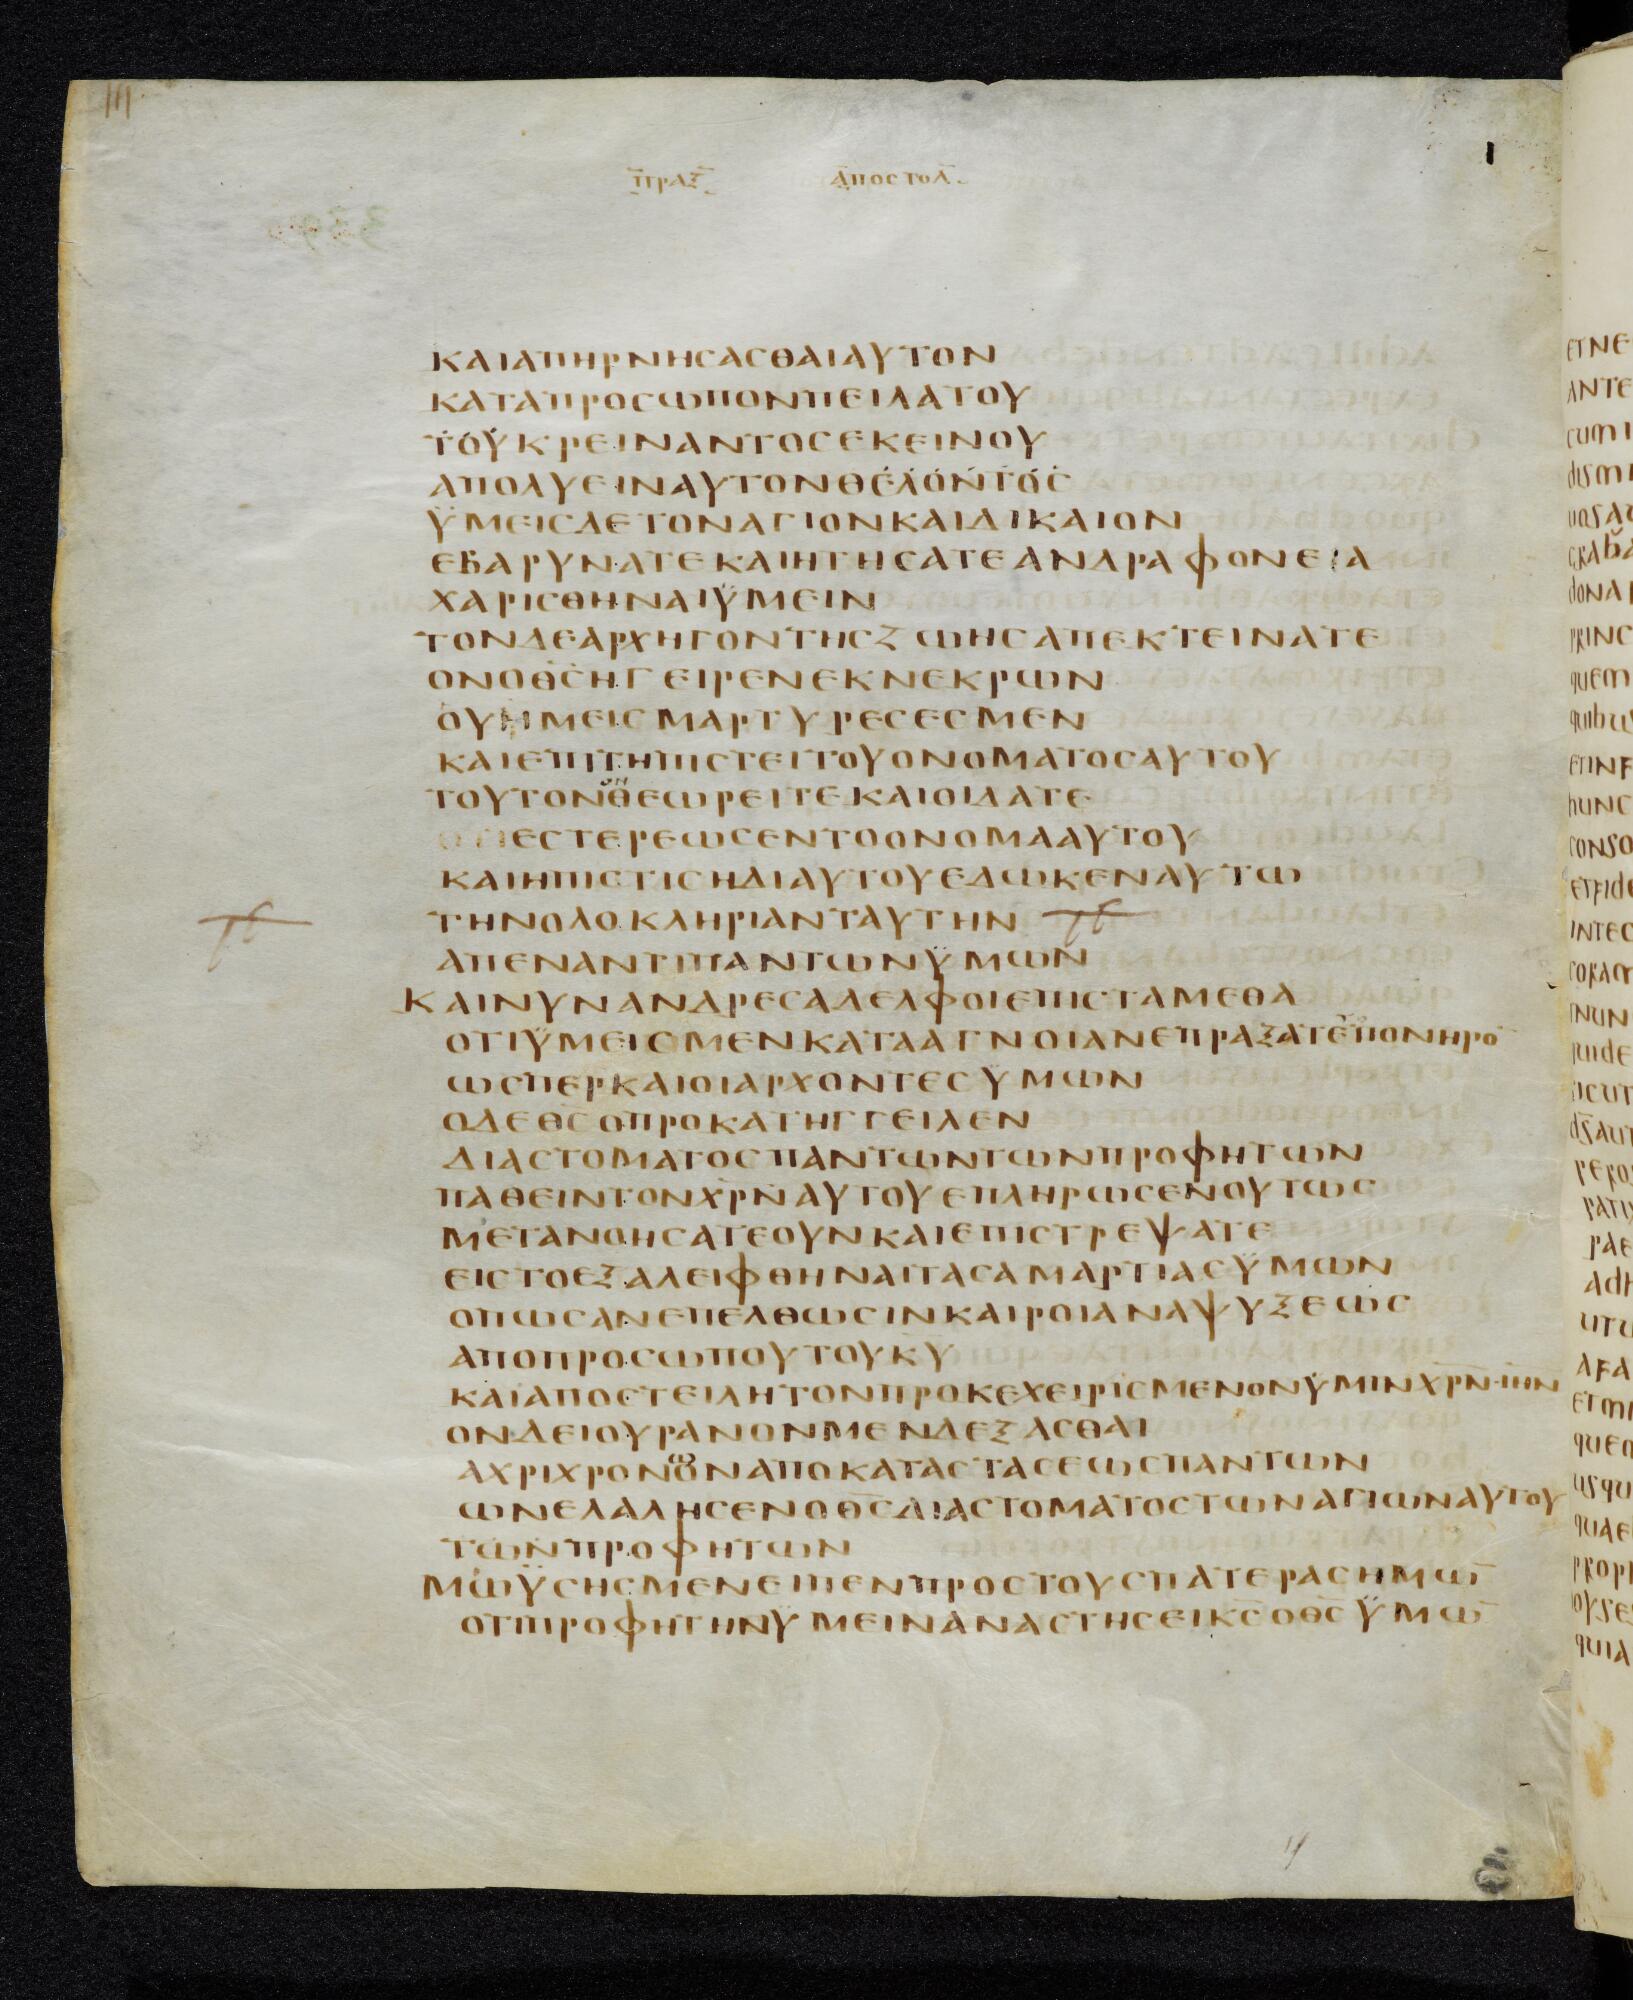 ΠΡΑΞ ΑΠΟΣΤΟΛ
ΚΑΙΑΠΗΡΝΗϹΑϹΘΑΙΑΥΤΟΝ
ΚΑΤΑΠΡΟϹΩΠΟΝΠΕΙΛΑΤΟΥ
ΤΟΥΚΡΕΙΝΑΝΤΟϹΕΚΕΙΝΟΥ
ΑΠΟΛΥΕΙΝΑΥΤΟΝΘΕΛΟΝΤΟϹ
ΫΜΕΙϹΔΕΤΟΝΑΓΙΟΝΚΑΙΔΙΚΑΙΟΝ
ΕΒΑΡΥΝΑΤΕΚΑΙΗΤΗϹΑΤΕΑΝΔΡΑΦΟΝΕΙΑ
ΧΑΡΙϹΘΗΝΑΙΫΜΕΙΝ
ΤΟΝΔΕΑΡΧΗΓΟΝΤΗϹΖΩΗϹΑΠΕΚΤΕΙΝΑΤΕ
ΟΝΟΘϹΗΓΕΙΡΕΝΕΚΝΕΚΡΩΝ
ΟΥΗΜΕΙϹΜΑΡΤΥΡΕϹΕϹΜΕΝ
ΚΑΙΕΠΙΤΗΠΙϹΤΕΙΤΟΥΟΝΟΜΑΤΟϹΑΥΤΟΥ
ΤΟΥΤΟΝΟΝΘΕΩΡΕΙΤΕΚΑΙΟΙΔΑΤΕ
ΟΤΙΕϹΤΕΡΕΩϹΕΝΤΟΟΝΟΜΑΑΥΤΟΥ
ΚΑΙΗΠΙϹΤΙϹΗΔΙΑΥΤΟΥΕΔΩΚΕΝΑΥΤΩ
ΤΗΝΟΛΟΚΛΗΡΙΑΝΤΑΥΤΗΝ
ΑΠΕΝΑΝΤΙΠΑΝΤΩΝΫΜΩΝ
ΚΑΙΝΥΝΑΝΔΡΕϹΑΔΕΛΦΟΙΕΠΙϹΤΑΜΕΘΑ
ΟΤΙΫΜΕΙϹΜΕΝΚΑΤΑΑΓΝΟΙΑΝΕΠΡΑΞΑΤΕΠΟΝΗΡΟ̅
ΩϹΠΕΡΚΑΙΟΙΑΡΧΟΝΤΕϹΫΜΩΝ
ΟΔΕΘϹΟΠΡΟΚΑΤΗΓΓΕΙΛΕΝ
ΔΙΑϹΤΟΜΑΤΟϹΠΑΝΤΩΝΤΩΝΠΡΟΦΗΤΩΝ
ΠΑΘΕΙΝΤΟΝΧΡΝΑΥΤΟΥΕΠΛΗΡΩϹΕΝΟΥΤΩϹ
ΜΕΤΑΝΟΗϹΑΤΕΟΥΝΚΑΙΕΠΙϹΤΡΕΨΑΤΕ
ΕΙϹΤΟΕΞΑΛΕΙΦΘΗΝΑΙΤΑϹΑΜΑΡΤΙΑϹΫΜΩΝ
ΟΠΩϹΑΝΕΠΕΛΘΩϹΙΝΚΑΙΡΟΙΑΝΑΨΥΞΕΩϹ
ΑΠΟΠΡΟϹΩΠΟΥΤΟΥΚΥ
ΚΑΙΑΠΟϹΤΕΙΛΗΤΟΝΠΡΟΚΕΧΕΙΡΙϹΜΕΝΟΝΫΜΙΝΧΡΝ·ΙΗΝ
ΟΝΔΕΙΟΥΡΑΝΟΝΜΕΝΔΕΞΑϹΘΑΙ
ΑΧΡΙΧΡΟΝΩΝΑΠΟΚΑΤΑϹΤΑϹΕΩϹΠΑΝΤΩΝ
ΩΝΕΛΑΛΗϹΕΝΟΘϹΔΙΑϹΤΟΜΑΤΟϹΤΩΝΑΓΙΩΝΑΥΤΟΥ
ΤΩΝΠΡΟΦΗΤΩΝ
ΜΩΫϹΗϹΜΕΝΕΙΠΕΝΠΡΟϹΤΟΥϹΠΑΤΕΡΑϹΗΜΩ̅
ΟΤΙΠΡΟΦΗΤΗΝΫΜΕΙΝΑΝΑϹΤΗϹΕΙΚϹΟΘϹΫΜΩ̅